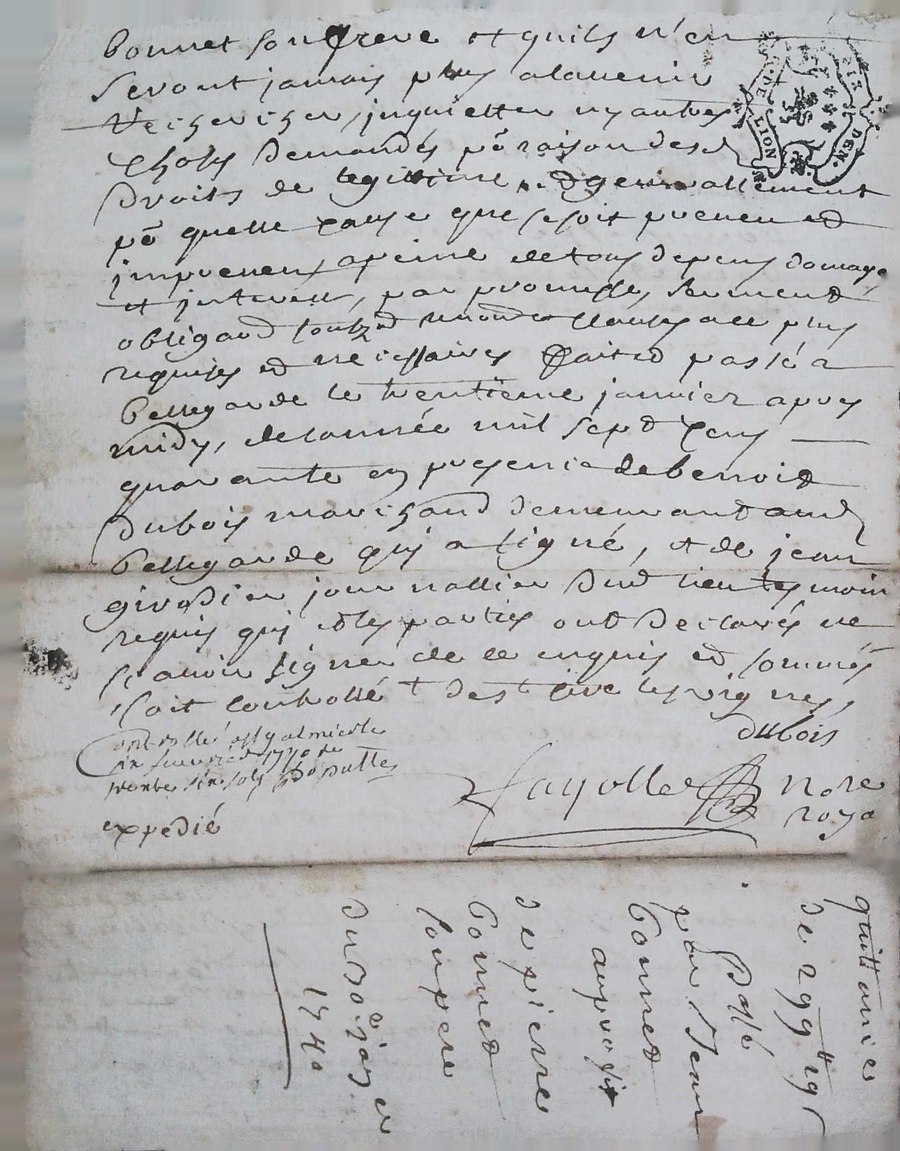 bonnet son frere et quils n'en
seront jamais plus alavenir
recherches, inquiettes ny autres
choses demandés pō raison des
Droits de legittime, & generallement
pō quelle cause que se soit preveu et
impreveu, a peine de tous depens domages
et interest, par promesses, serment
obligaõn soubzõn renonõn clauses a ce plus
requises et necessaires fait et passé a
bellegarde le trentieme janvier apres
midy, de lannée mil sept cens
quarante en presence de benoit
Dubois marchand demeurant aud
bellegarde qui a signé, et de jean
girodier journallier dud lieu tesmoin
requis qui et les parties ont declarés ne
scavoir signer de ce enquis et sommés
soit controllé
dubois
Fayolle nore
roya
expedié
quittance
de 299tt 19s
Passé
par Jean
bonnet
au proffit
de pierre
bonnet
son pere
du 30e janer
1740
LION
DEN